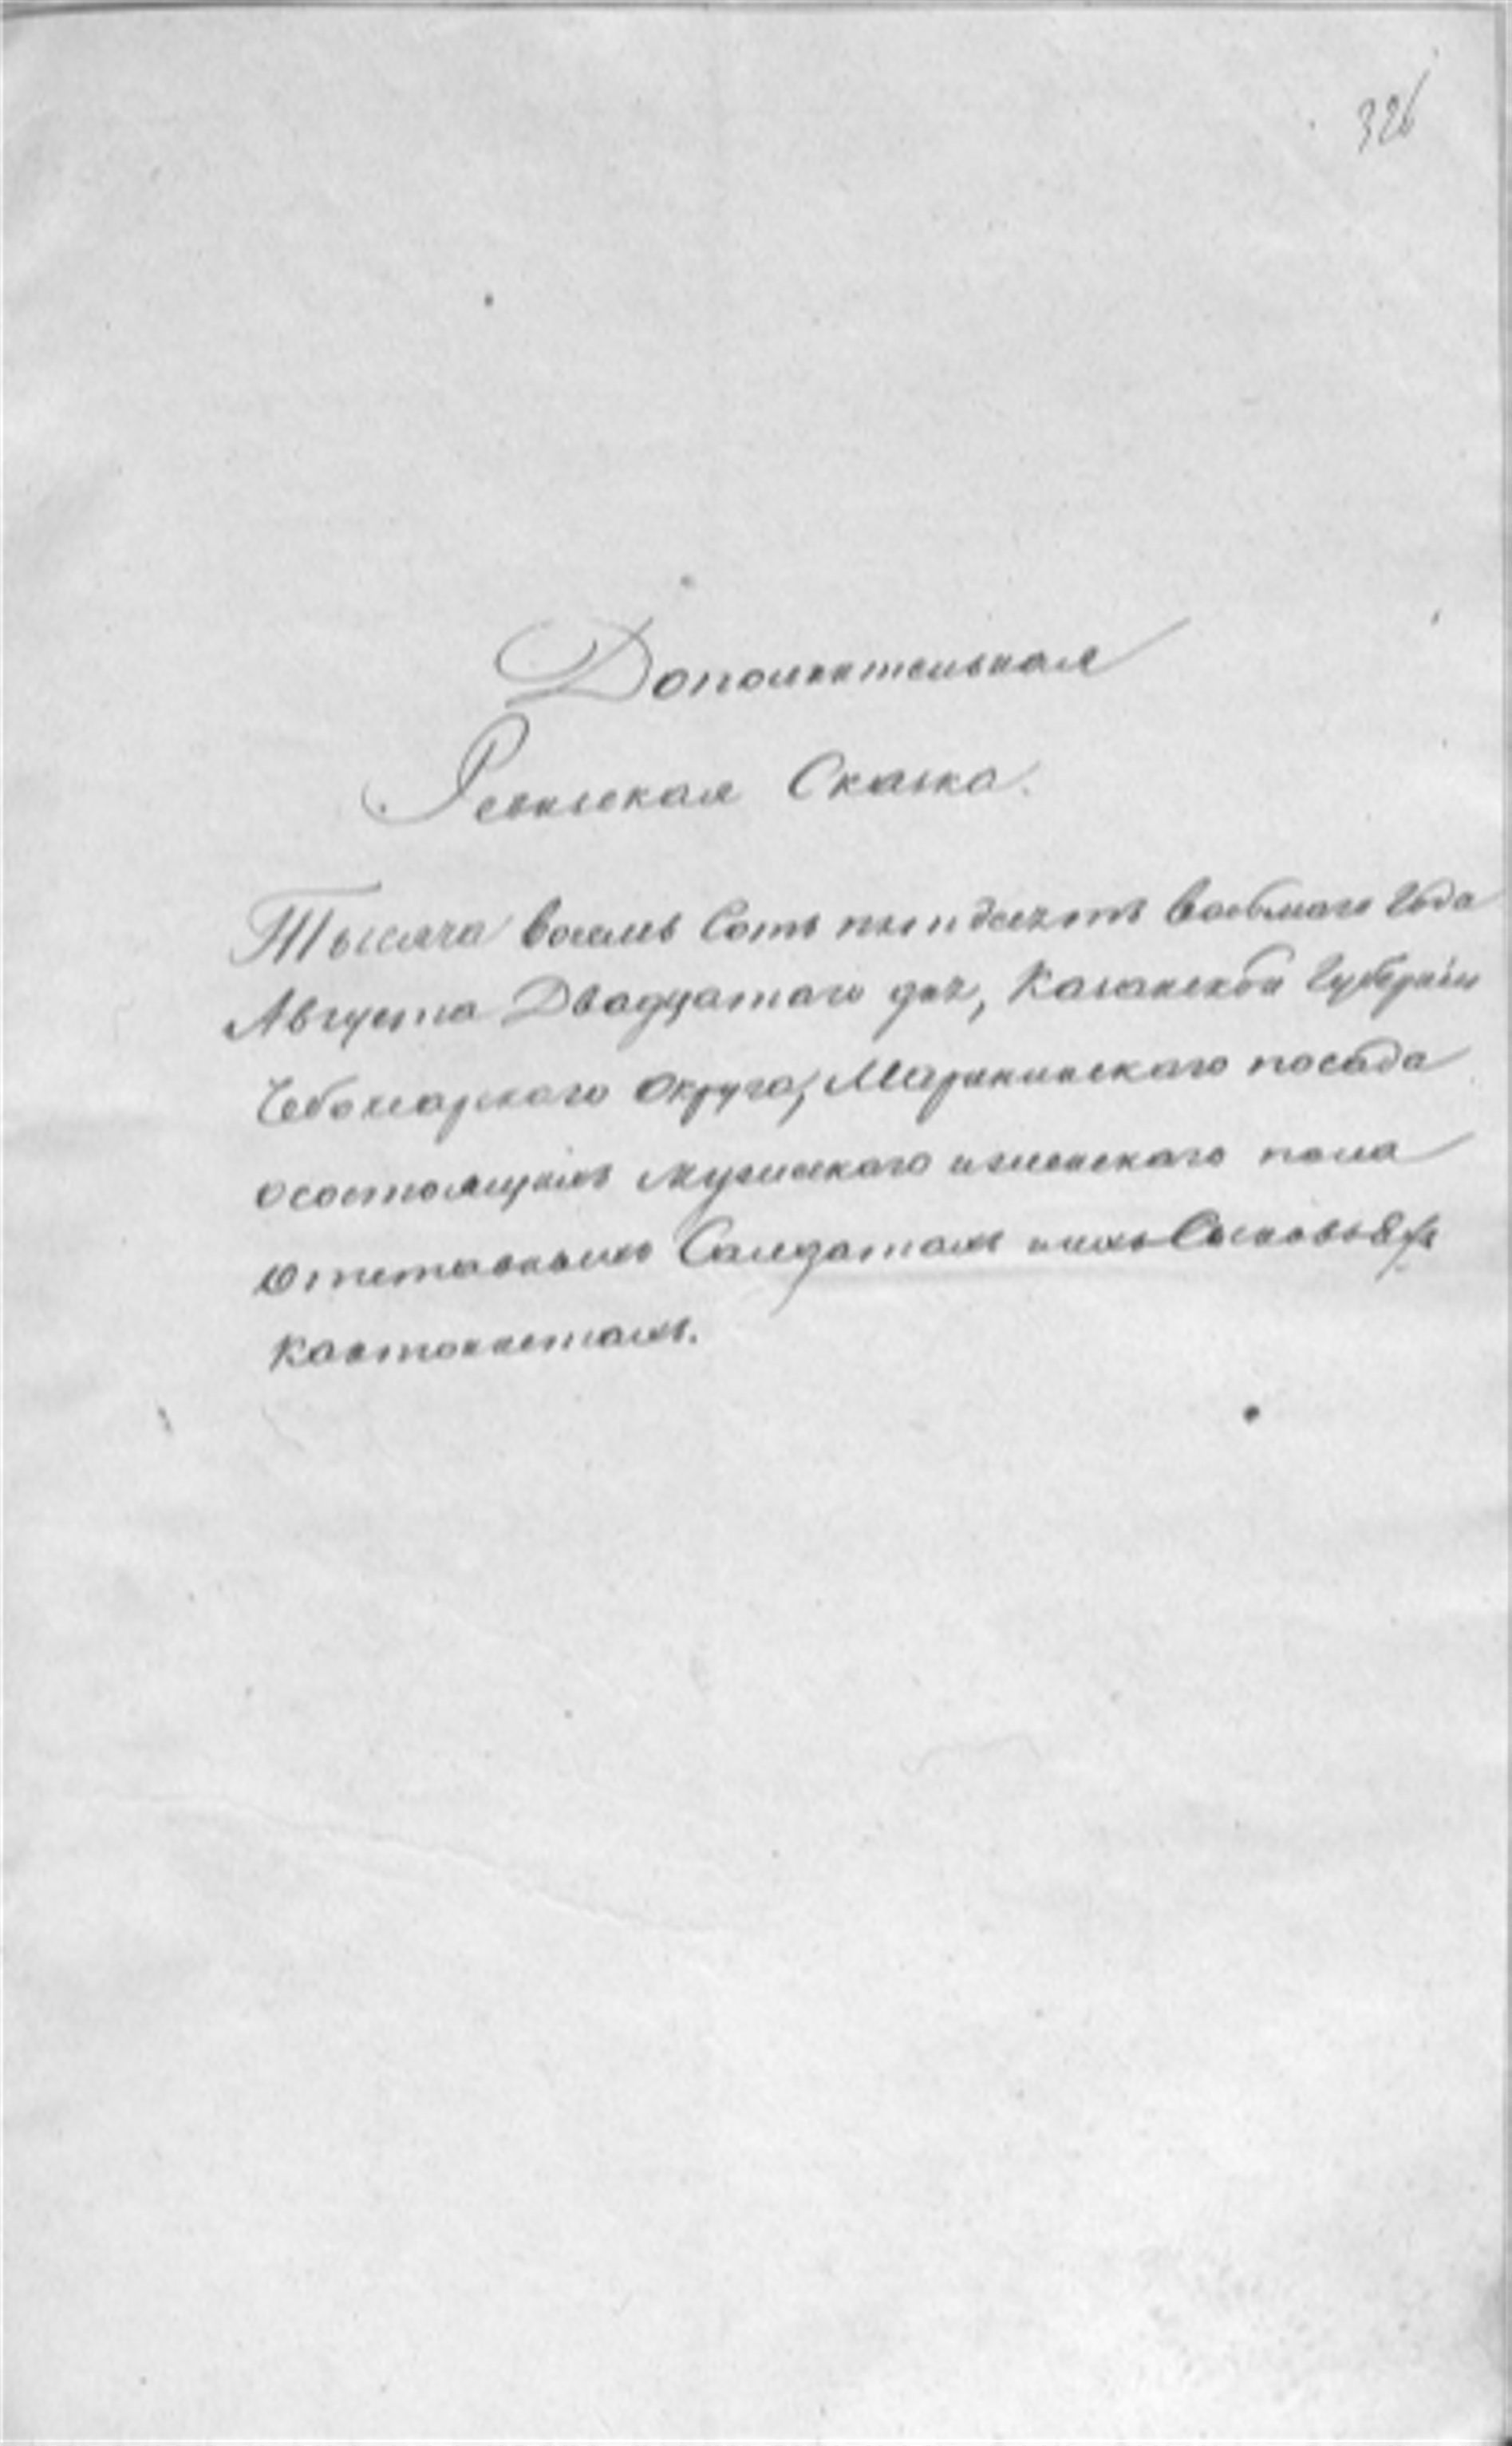 326
Дополнительная
Ревизская Сказка.
Тысяча восемь Сотъ пятидесятъ восьмаго Года
Августа Двадцатаго дня, Казанской Губерніи
Чебоксарскаго Округа, Маріинскаго посада
осостоящихъ мужескаго иженскаго пола
Отставныхъ Салдатахъ иихъ Сыновьяхъ
кантонистахъ.